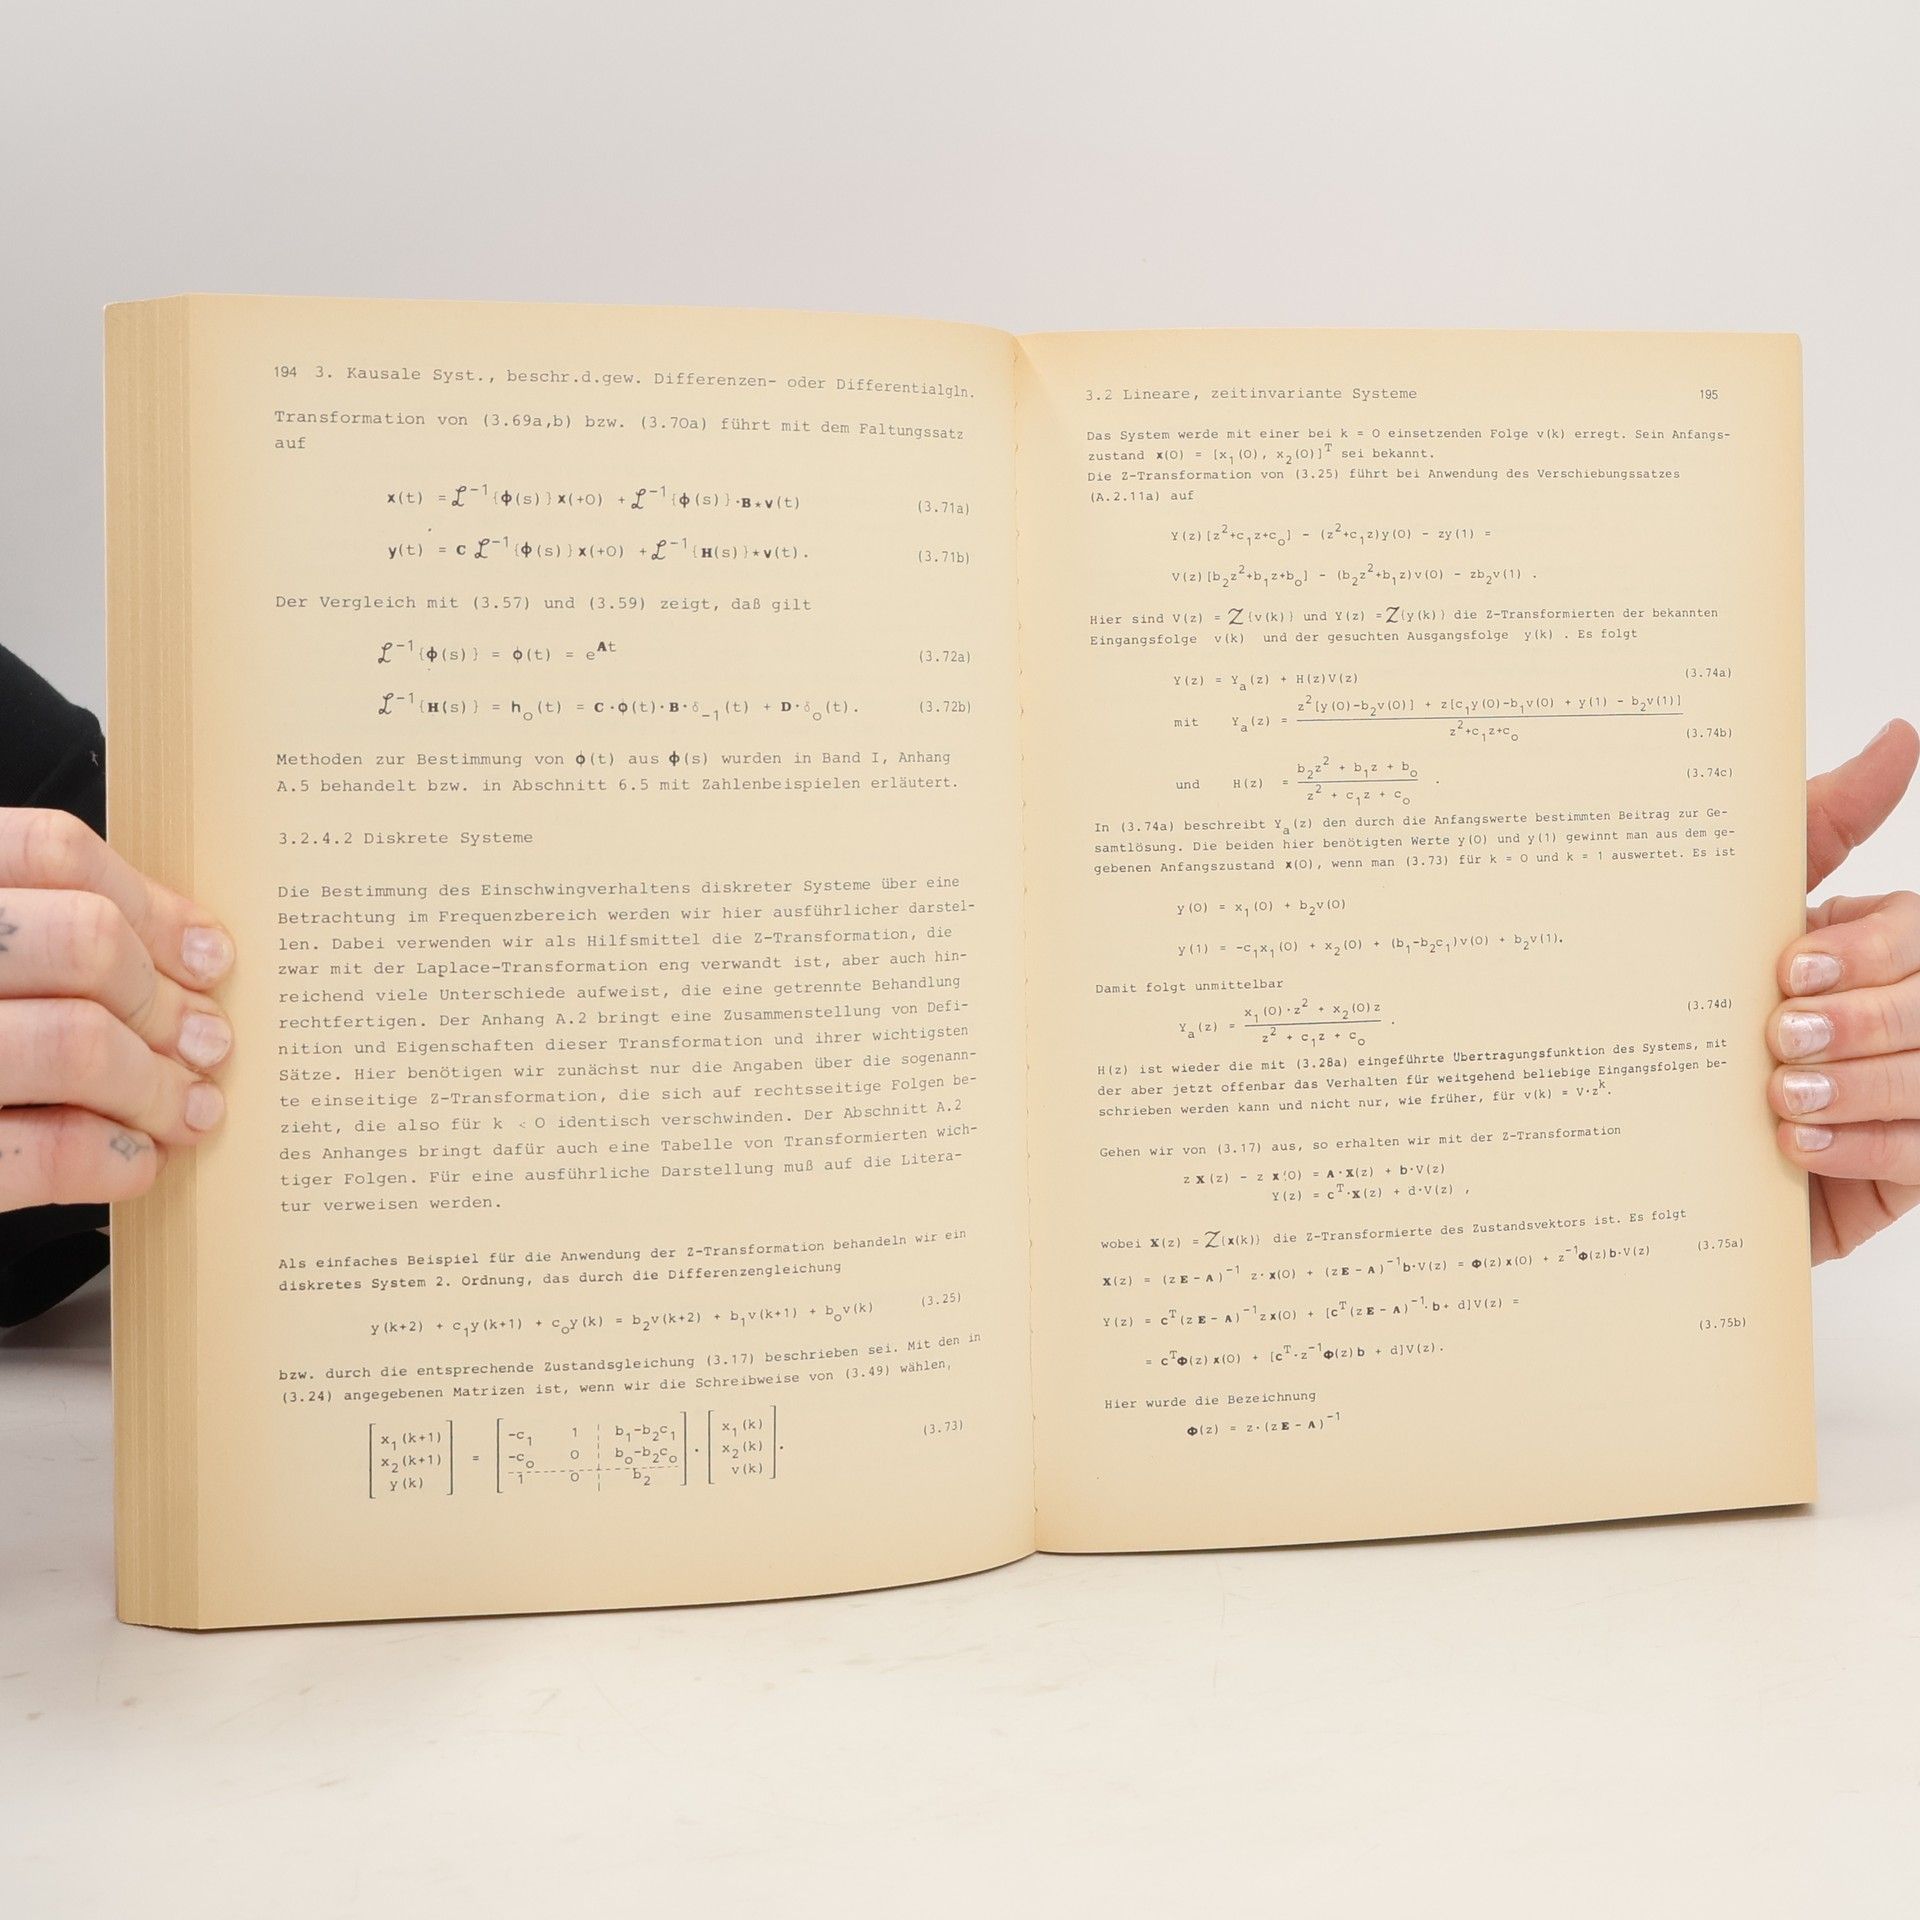 194 3. Kausale Syst., beschr.d.gew. Differenzen- oder Differentialgln.
Transformation von (3.69a,b) bzw. (3.70a) führt mit dem Faltungssatz
auf
x(t) = ℒ⁻¹{ϕ(s)}x(+0) + ℒ⁻¹{ϕ(s)}·B*v(t) (3.71a)
y(t) = C ℒ⁻¹{ϕ(s)}x(+0) + ℒ⁻¹{H(s)}*v(t). (3.71b)
Der Vergleich mit (3.57) und (3.59) zeigt, daß gilt
ℒ⁻¹{ϕ(s)} = ϕ(t) = e^At (3.72a)
ℒ⁻¹{H(s)} = h₀(t) = C·ϕ(t)·B·δ₋₁(t) + D·δ₀(t). (3.72b)
Methoden zur Bestimmung von ϕ(t) aus ϕ(s) wurden in Band I, Anhang
A.5 behandelt bzw. in Abschnitt 6.5 mit Zahlenbeispielen erläutert.
3.2.4.2 Diskrete Systeme
Die Bestimmung des Einschwingverhaltens diskreter Systeme über eine
Betrachtung im Frequenzbereich werden wir hier ausführlicher darstel-
len. Dabei verwenden wir als Hilfsmittel die Z-Transformation, die
zwar mit der Laplace-Transformation eng verwandt ist, aber auch hin-
reichend viele Unterschiede aufweist, die eine getrennte Behandlung
rechtfertigen. Der Anhang A.2 bringt eine Zusammenstellung von Defi-
nition und Eigenschaften dieser Transformation und ihrer wichtigsten
Sätze. Hier benötigen wir zunächst nur die Angaben über die sogenann-
te einseitige Z-Transformation, die sich auf rechtsseitige Folgen be-
zieht, die also für k < 0 identisch verschwinden. Der Abschnitt A.2
des Anhanges bringt dafür auch eine Tabelle von Transformierten wich-
tiger Folgen. Für eine ausführliche Darstellung muß auf die Litera-
tur verweisen werden.
Als einfaches Beispiel für die Anwendung der Z-Transformation behandeln wir ein
diskretes System 2. Ordnung, das durch die Differenzengleichung
y(k+2) + c₁y(k+1) + c₀y(k) = b₂v(k+2) + b₁v(k+1) + b₀v(k) (3.25)
bzw. durch die entsprechende Zustandsgleichung (3.17) beschrieben sei. Mit den in
(3.24) angegebenen Matrizen ist, wenn wir die Schreibweise von (3.49) wählen,
x₁(k+1) -c₁ 1 b₁-b₂c₁ x₁(k) (3.73)
x₂(k+1) = -c₀ 0 b₀-b₂c₀ · x₂(k) .
y(k) 1 0 b₂ v(k)
3.2 Lineare, zeitinvariante Systeme 195
Das System werde mit einer bei k = 0 einsetzenden Folge v(k) erregt. Sein Anfangs-
zustand x(0) = [x₁(0), x₂(0)]ᵀ sei bekannt.
Die Z-Transformation von (3.25) führt bei Anwendung des Verschiebungssatzes
(A.2.11a) auf
Y(z)[z²+c₁z+c₀] - (z²+c₁z)y(0) - zy(1) =
V(z)[b₂z²+b₁z+b₀] - (b₂z²+b₁z)v(0) - zb₂v(1) .
Hier sind V(z) = Z{v(k)} und Y(z) = Z{y(k)} die Z-Transformierten der bekannten
Eingangsfolge v(k) und der gesuchten Ausgangsfolge y(k) . Es folgt
Y(z) = Yₐ(z) + H(z)V(z) (3.74a)
z²[y(0)-b₂v(0)] + z[c₁y(0)-b₁v(0) + y(1) - b₂v(1)]
mit Yₐ(z) =
z²+c₁z+c₀ (3.74b)
b₂z² + b₁z + b₀ (3.74c)
und H(z) = .
z² + c₁z + c₀
In (3.74a) beschreibt Yₐ(z) den durch die Anfangswerte bestimmten Beitrag zur Ge-
samtlösung. Die beiden hier benötigten Werte y(0) und y(1) gewinnt man aus dem ge-
gebenen Anfangszustand x(0), wenn man (3.73) für k = 0 und k = 1 auswertet. Es ist
y(0) = x₁(0) + b₂v(0)
y(1) = -c₁x₁(0) + x₂(0) + (b₁-b₂c₁)v(0) + b₂v(1).
Damit folgt unmittelbar
x₁(0)·z² + x₂(0)z (3.74d)
Yₐ(z) = .
z² + c₁z + c₀
H(z) ist wieder die mit (3.28a) eingeführte Übertragungsfunktion des Systems, mit
der aber jetzt offenbar das Verhalten für weitgehend beliebige Eingangsfolgen be-
schrieben werden kann und nicht nur, wie früher, für v(k) = V·zᵏ.
Gehen wir von (3.17) aus, so erhalten wir mit der Z-Transformation
z X(z) - z x(0) = A·X(z) + b·V(z)
Y(z) = cᵀ·X(z) + d·V(z) ,
wobei X(z) = Z{x(k)} die Z-Transformierte des Zustandsvektors ist. Es folgt
X(z) = (zE-A)⁻¹ z·x(0) + (zE-A)⁻¹b·V(z) = Φ(z)x(0) + z⁻¹Φ(z)b·V(z) (3.75a)
Y(z) = cᵀ(zE-A)⁻¹zx(0) + [cᵀ(zE-A)⁻¹·b+ d]V(z) =
(3.75b)
= cᵀΦ(z)x(0) + [cᵀ·z⁻¹Φ(z)b + d]V(z).
Hier wurde die Bezeichnung
Φ(z) = z·(zE-A)⁻¹